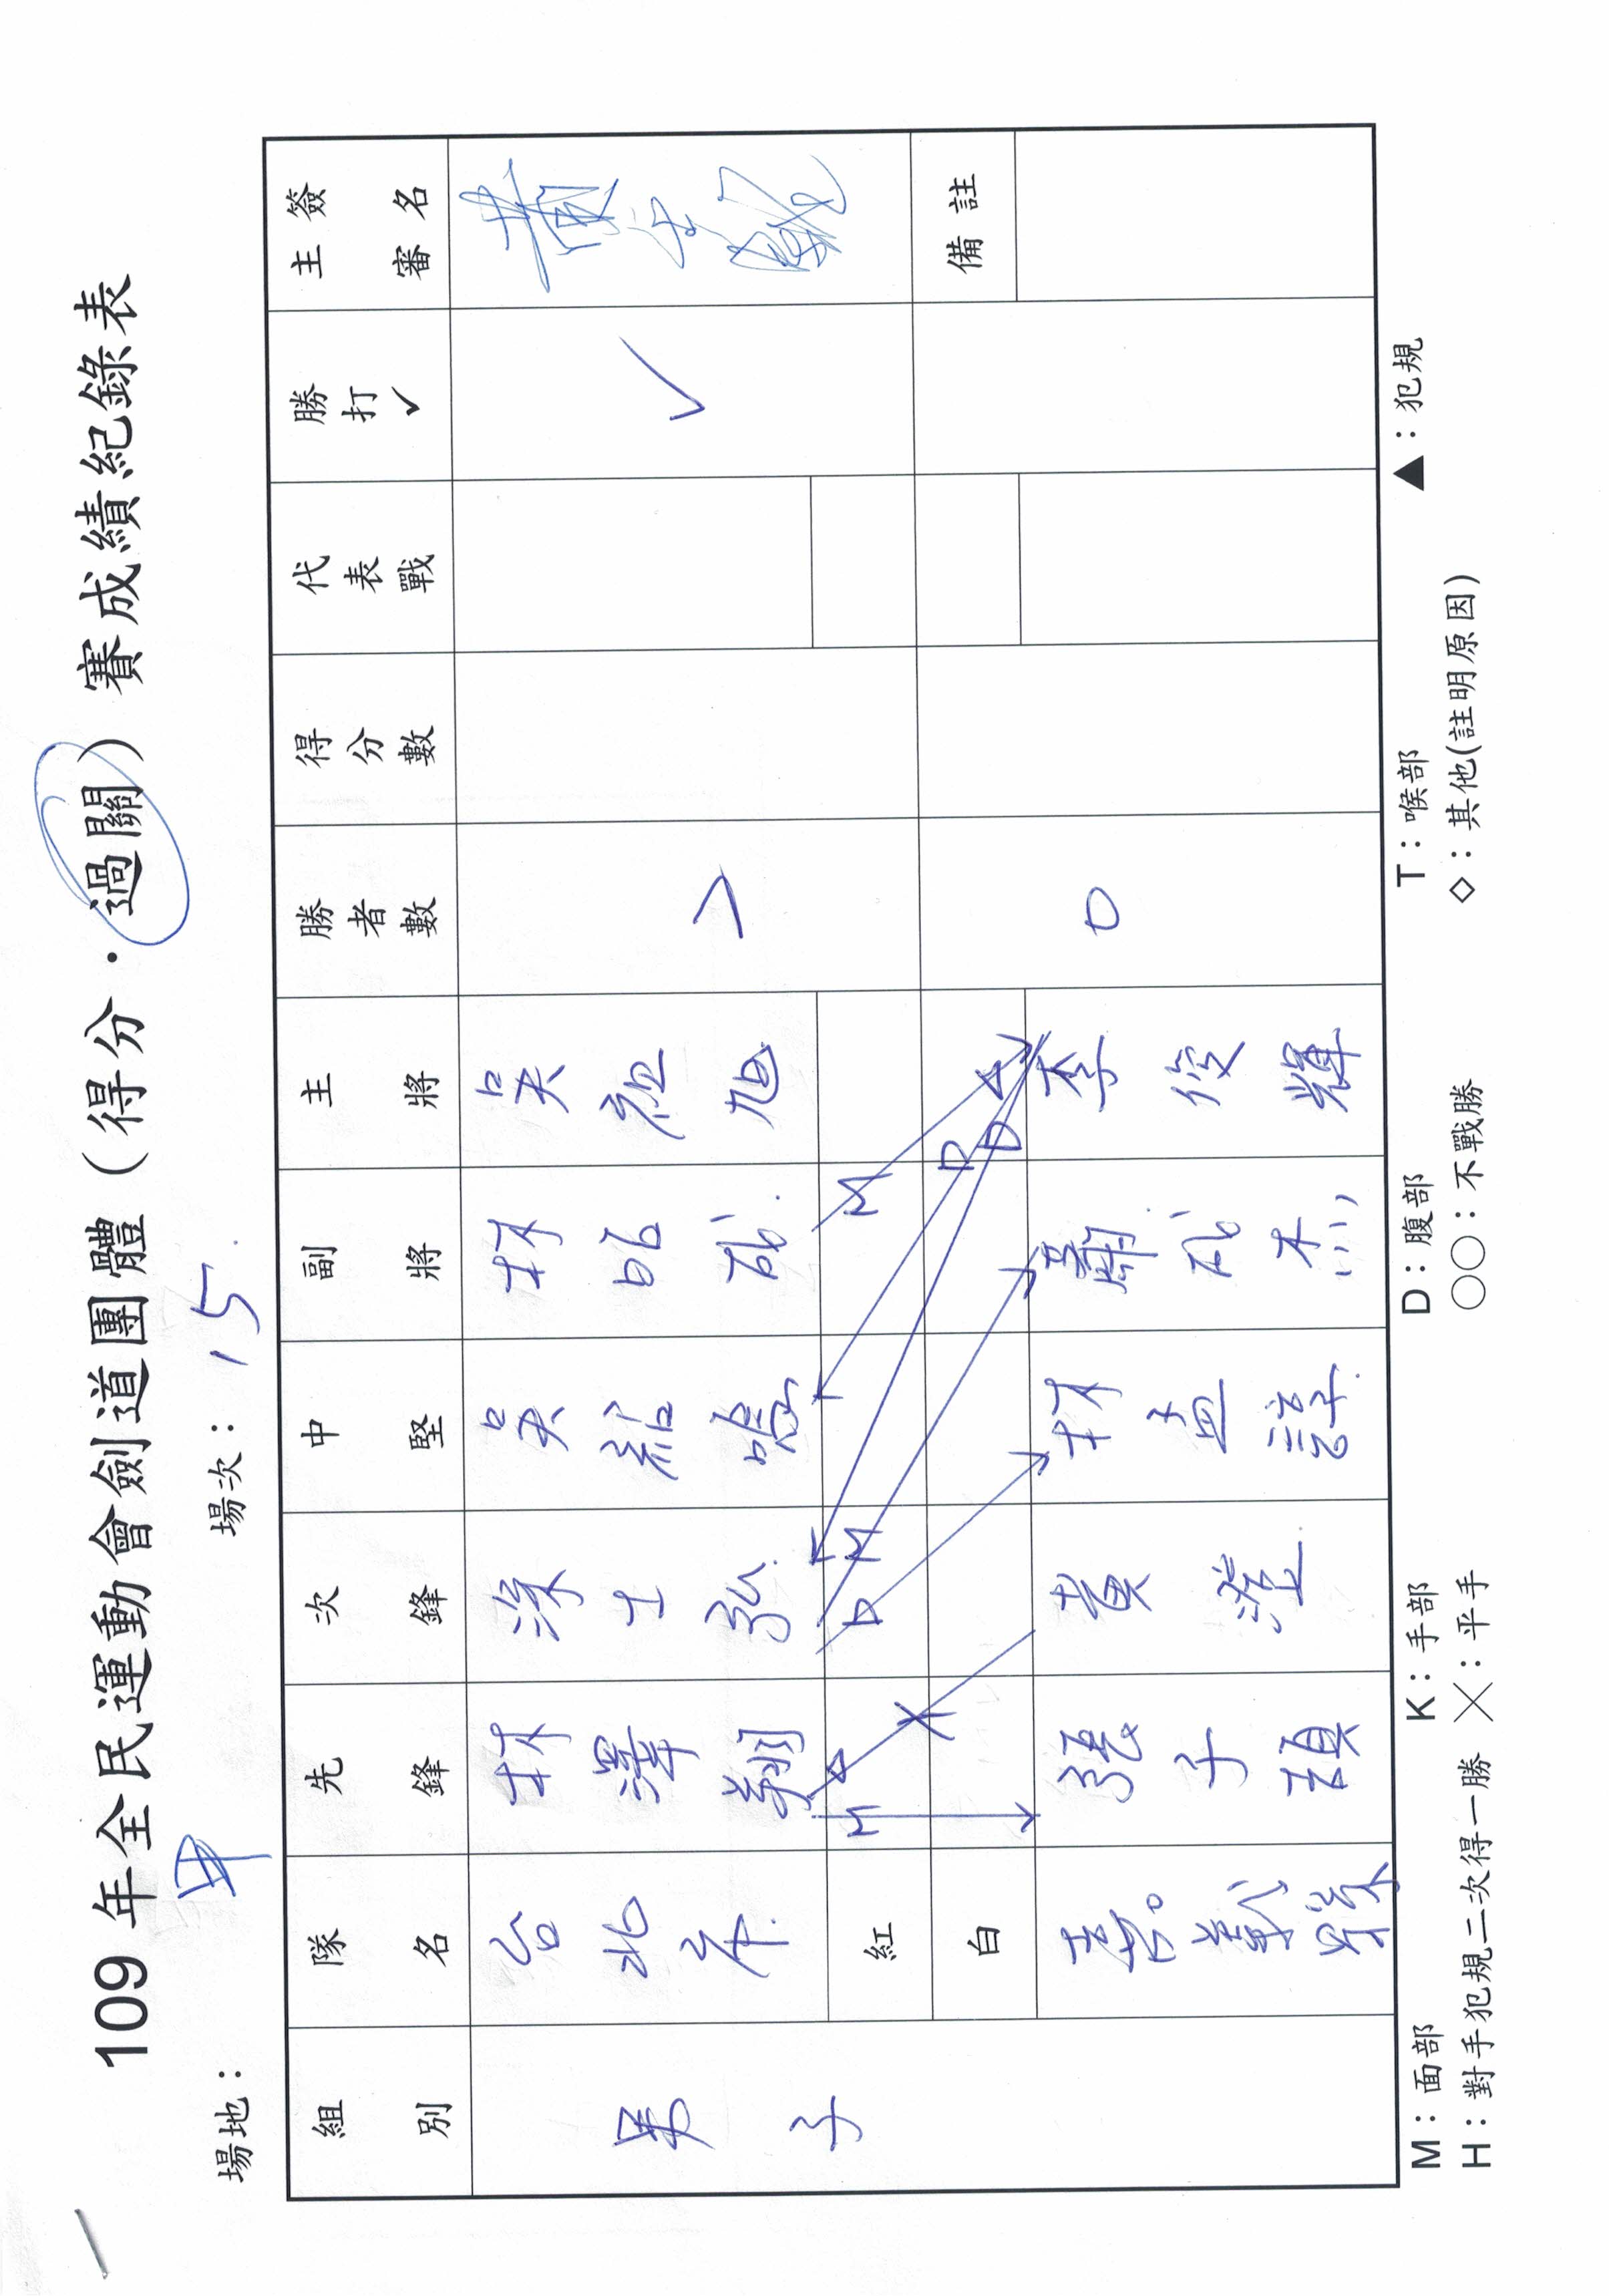 109 年全民運動會劍道團體（得分．過關）賽成績紀錄表
場地： 甲 場次：15
組別 隊名 先鋒 次鋒 中堅 副將 主將 勝者數 得分數 代表戰 勝打✓ 主審簽名
男子
台北市 林澤翔 涂士弘 吳紹鳴 林昭成 吳祖旭 ✓
紅 M D M M
白 X D D 0 備註
張子頊 黃澄 林孟諄 蕭成杰 李俊輝
M：面部 K：手部 D：腹部 T：喉部 ▲：犯規
H：對手犯規二次得一勝 ╳：平手 ○○：不戰勝 ◇：其他(註明原因)